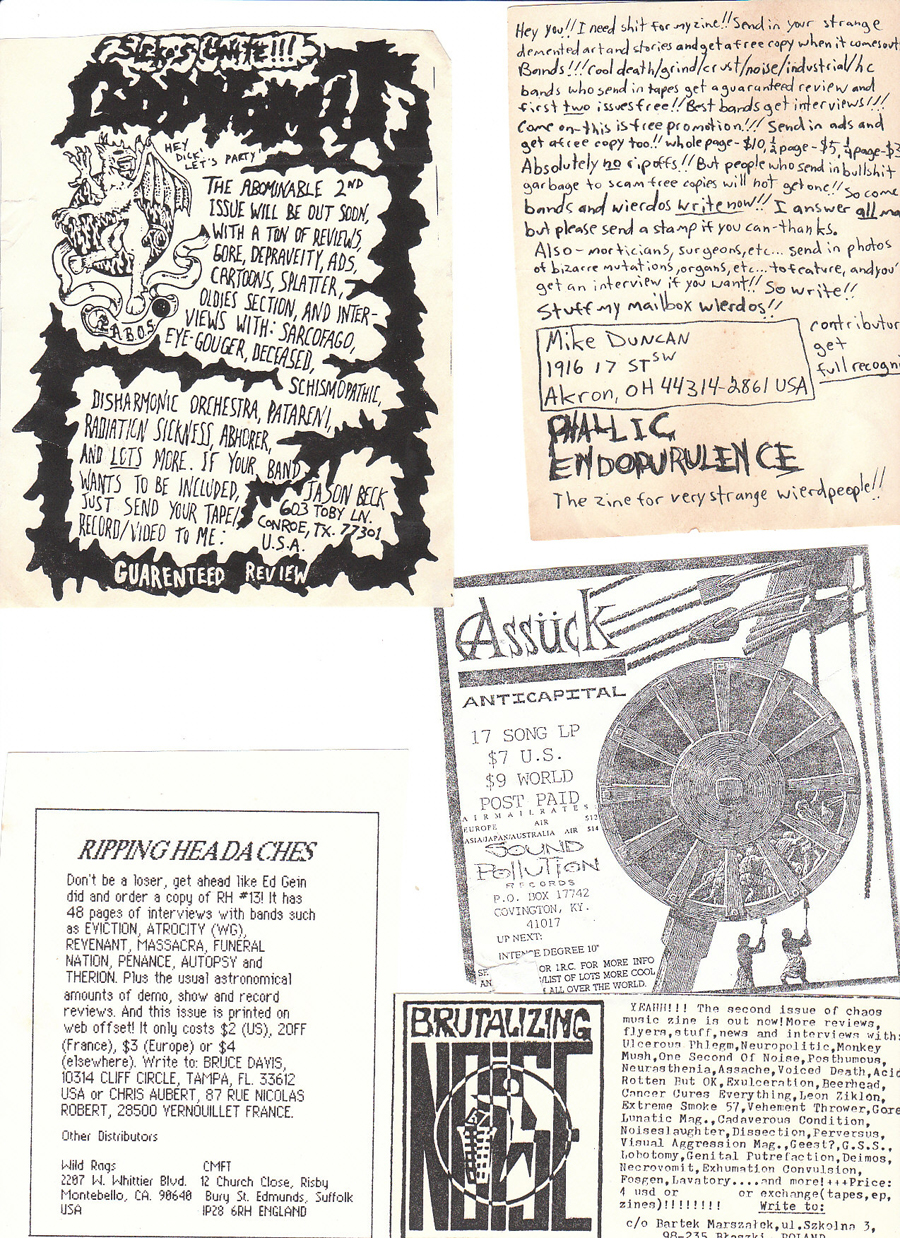 Sickos Unite!!!
HEY
DICK!
LET'S PARTY!
THE ABOMINABLE 2ND
ISSUE WILL BE OUT SOON,
WITH A TON OF REVIEWS,
GORE, DEPRAVEITY, ADS,
CARTOONS, SPLATTER,
OLDIES SECTION, AND INTER-
VIEWS WITH: SARCOFAGO,
EYE-GOUGER, DECEASED,
SCHISMOPATHIC,
DISHARMONIC ORCHESTRA, PATARENI,
RADIATION SICKNESS, ABHORER,
AND LOTS MORE. IF YOUR BAND
WANTS TO BE INCLUDED,
JUST SEND YOUR TAPE/
RECORD/VIDEO TO ME:
JASON BECK
603 TOBY LN.
CONROE, TX. 77301
U.S.A.
GUARENTEED REVIEW
Hey you!! I need shit for my zine!! Send in your strange
demented art and stories and get a free copy when it comes out
Bands!!! cool death/grind/crust/noise/industrial/hc
bands who send in tapes get a guaranteed review and
first two issues free!! Best bands get interviews!!!
Come on-this is free promotion!!! Send in ads and
get a free copy too!! whole page-$10, ½ page-$5, ¼ page-$3
Absolutely no ripoffs!! But people who send in bullshit
garbage to scam free copies will not get one!! So come
bands and wierdos write now!! I answer all ma
but please send a stamp if you can-thanks.
Also-morticians, surgeons, etc... send in photos
of bizarre mutations, organs, etc... to feature, and you'
get an interview if you want!! So write!!
Stuff my mailbox wierdos!!
Mike DUNCAN
1916 17 ST SW
Akron, OH 44314-2861 USA
contributor
get
full recogni
PHALLIC
ENDOPURULENCE
The zine for very strange wierd people!!
Assück
ANTICAPITAL
17 SONG LP
$7 U.S.
$9 WORLD
POST PAID
AIRMAIL RATES
EUROPE AIR $12
ASIA/JAPAN/AUSTRALIA AIR $14
SOUND
Pollution
RECORDS
P.O. BOX 17742
COVINGTON, KY.
41017
UP NEXT:
INTENCE DEGREE 10"
OR I.R.C. FOR MORE INFO
LIST OF LOTS MORE COOL
ALL OVER THE WORLD.
RIPPING HEADACHES
Don't be a loser, get ahead like Ed Gein
did and order a copy of RH #13! It has
48 pages of interviews with bands such
as EVICTION, ATROCITY (WG),
REVENANT, MASSACRA, FUNERAL
NATION, PENANCE, AUTOPSY and
THERION. Plus the usual astronomical
amounts of demo, show and record
reviews. And this issue is printed on
web offset! It only costs $2 (US), 20FF
(France), $3 (Europe) or $4
(elsewhere). Write to: BRUCE DAVIS,
10314 CLIFF CIRCLE, TAMPA, FL. 33612
USA or CHRIS AUBERT, 87 RUE NICOLAS
ROBERT, 28500 VERNOUILLET FRANCE.
Other Distributors
Wild Rags
2207 W. Whittier Blvd.
Montebello, CA. 90640
USA
CMFT
12 Church Close, Risby
Bury St. Edmunds, Suffolk
IP28 6RH ENGLAND
BRUTALIZING
NOISE
YEAHH!!! The second issue of chaos
music zine is out now!More reviews,
flyers,stuff,news and interviews with:
Ulcerous Phlegm,Neuropolitic,Monkey
Mush,One Second Of Noise,Posthumous,
Neurasthenia,Assache,Voiced Death,Acid
Rotten But OK,Exulceration,Beerhead,
Cancer Cures Everything,Leon Ziklon,
Extreme Smoke 57,Vehement Thrower,Gore
Lunatic Mag.,Cadaverous Condition,
Noiseslaughter,Dissection,Perversus,
Visual Aggression Mag.,Geest?,G.S.S.,
Lobotomy,Genital Putrefaction,Deimos,
Necrovomit,Exhumation Convulsion,
Fosgen,Lavatory....and more!+++Price:
4 usd or or exchange(tapes,ep,
zines)!!!!!!!! Write to:
c/o Bartek Marszałek,ul.Szkolna 3,
98-235 Błaszki, POLAND